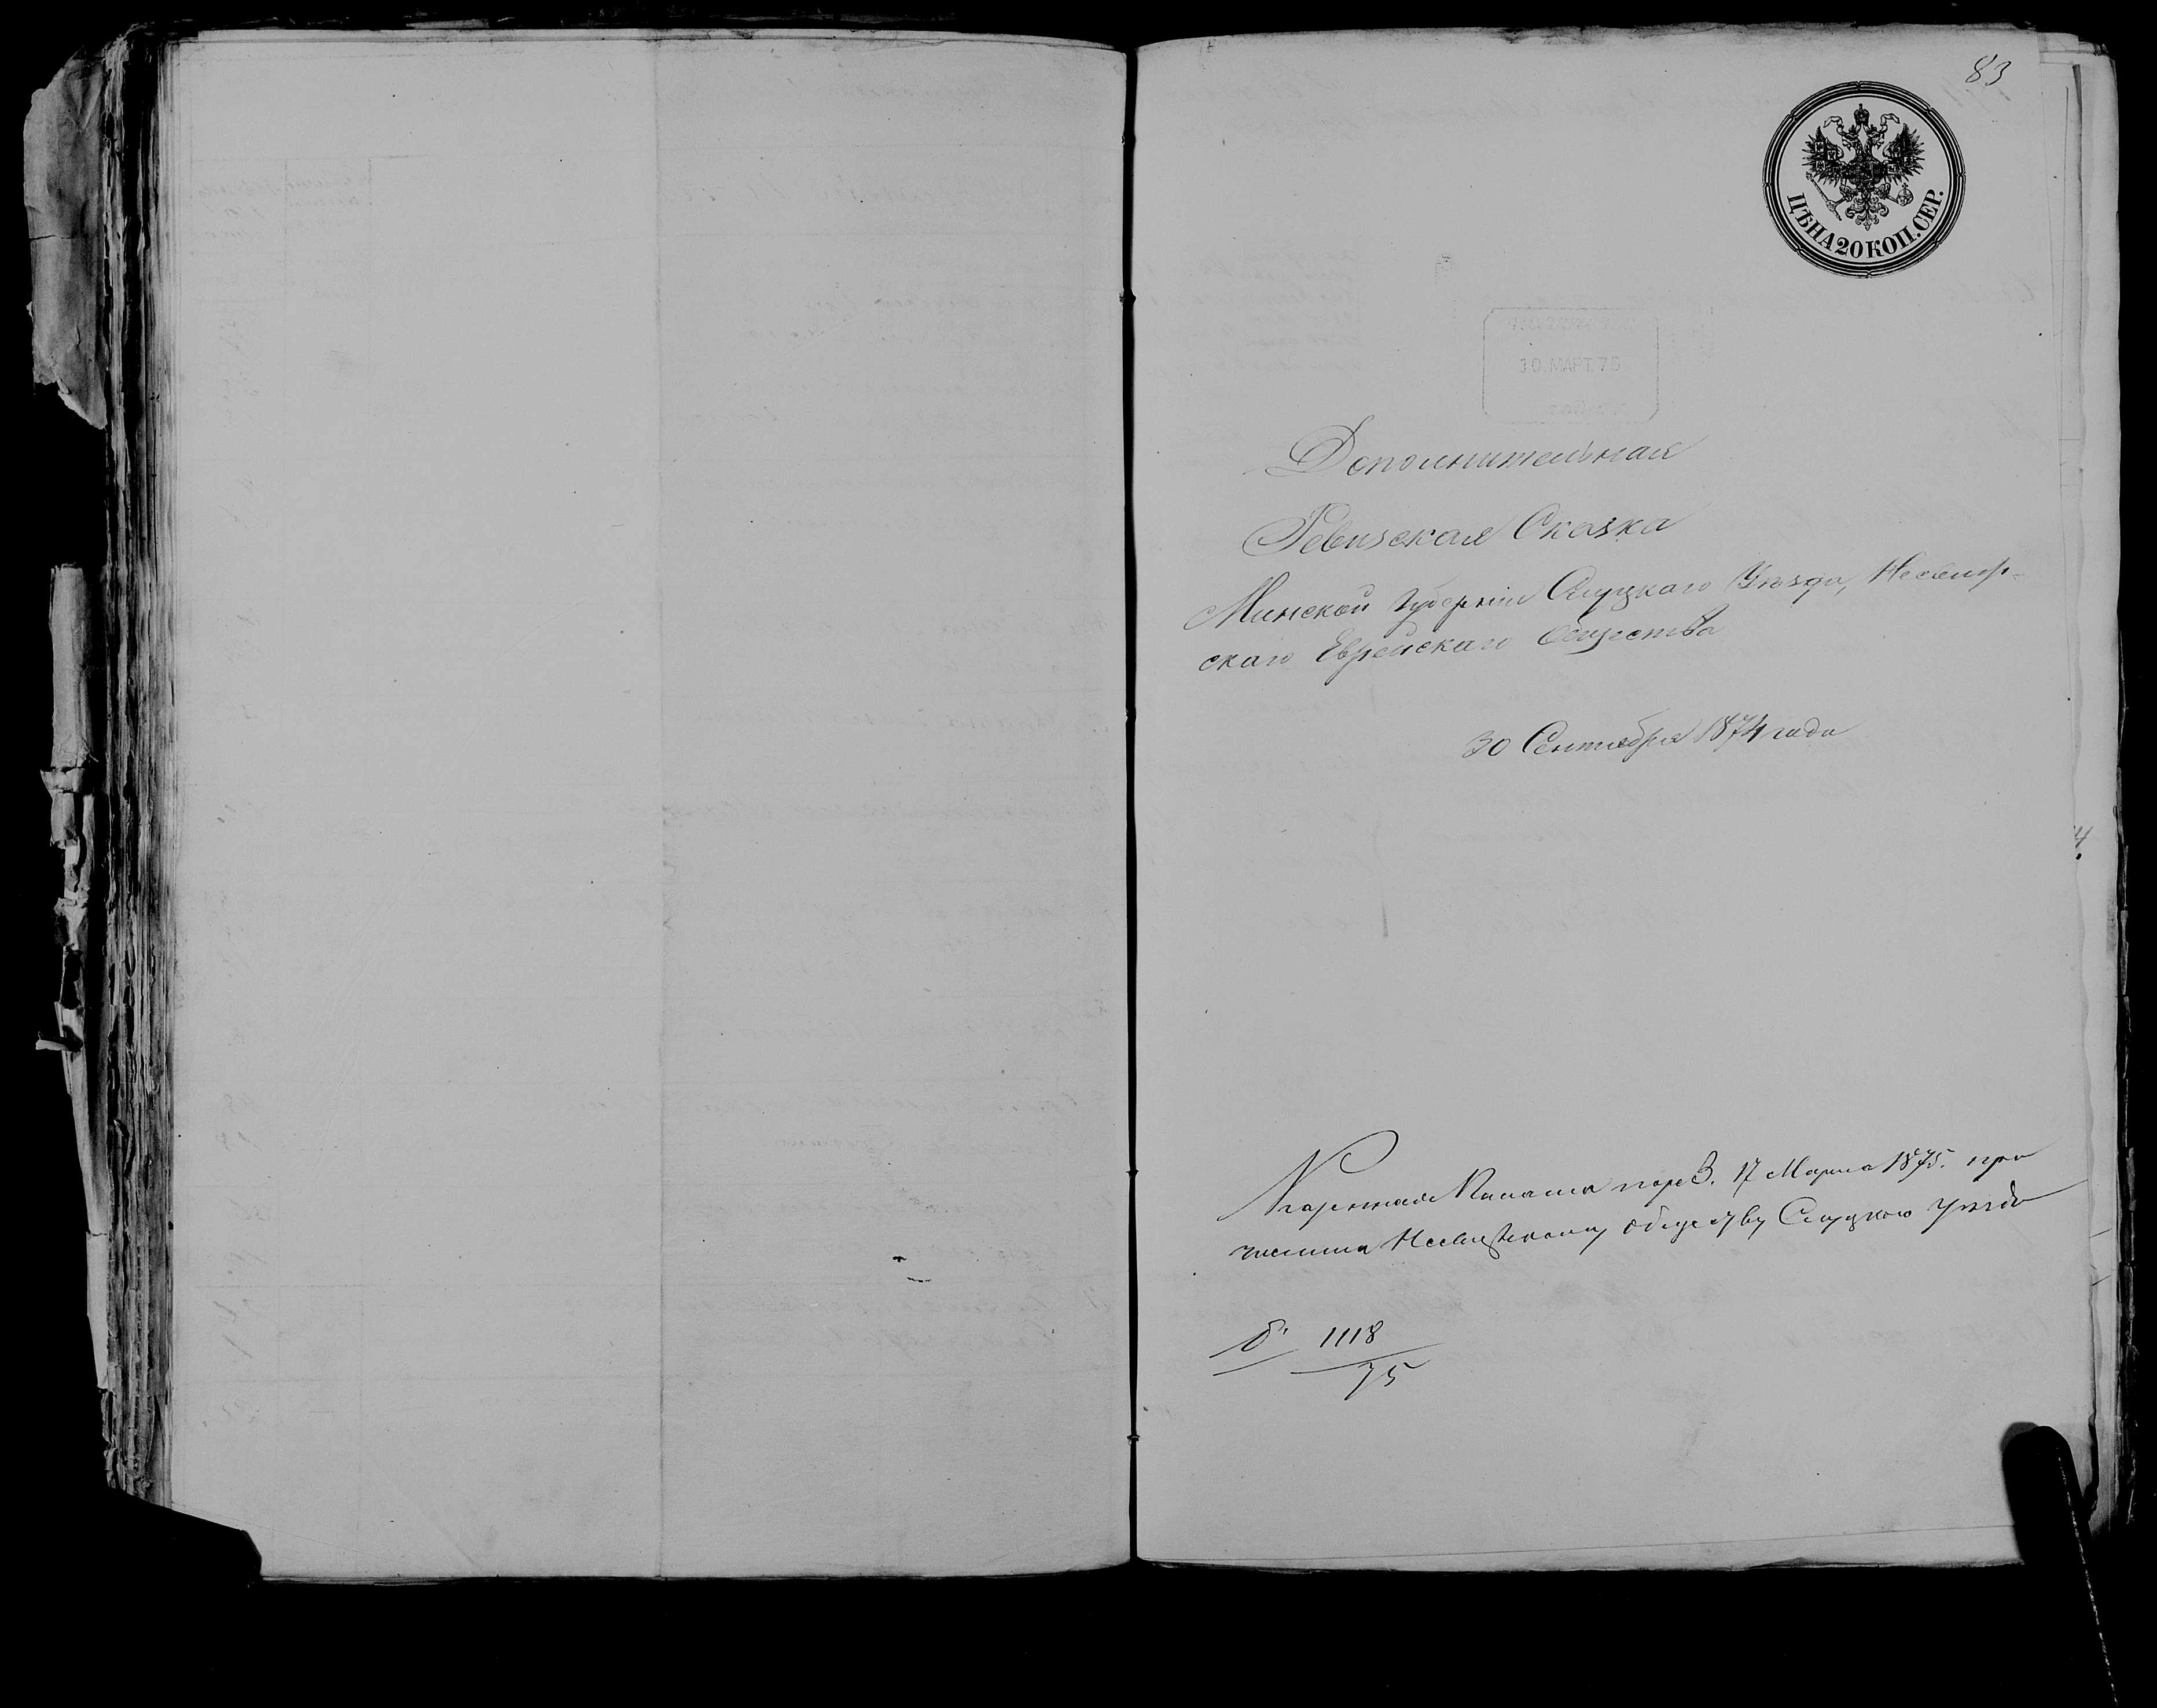 83
ЦѢНА 20 КОП. СЕР.
30. МАРТ. 75
Дополнительная
Ревизская Сказка
Минской Губерніи Слуцкаго Уѣзда, Несвиж-
скаго Еврейскаго Общества
30 Сентября 1874 года
Казенная Палата 17 Марта 1875. при
числила Несвижскому обществу Слуцкаго уѣзда
1118
75